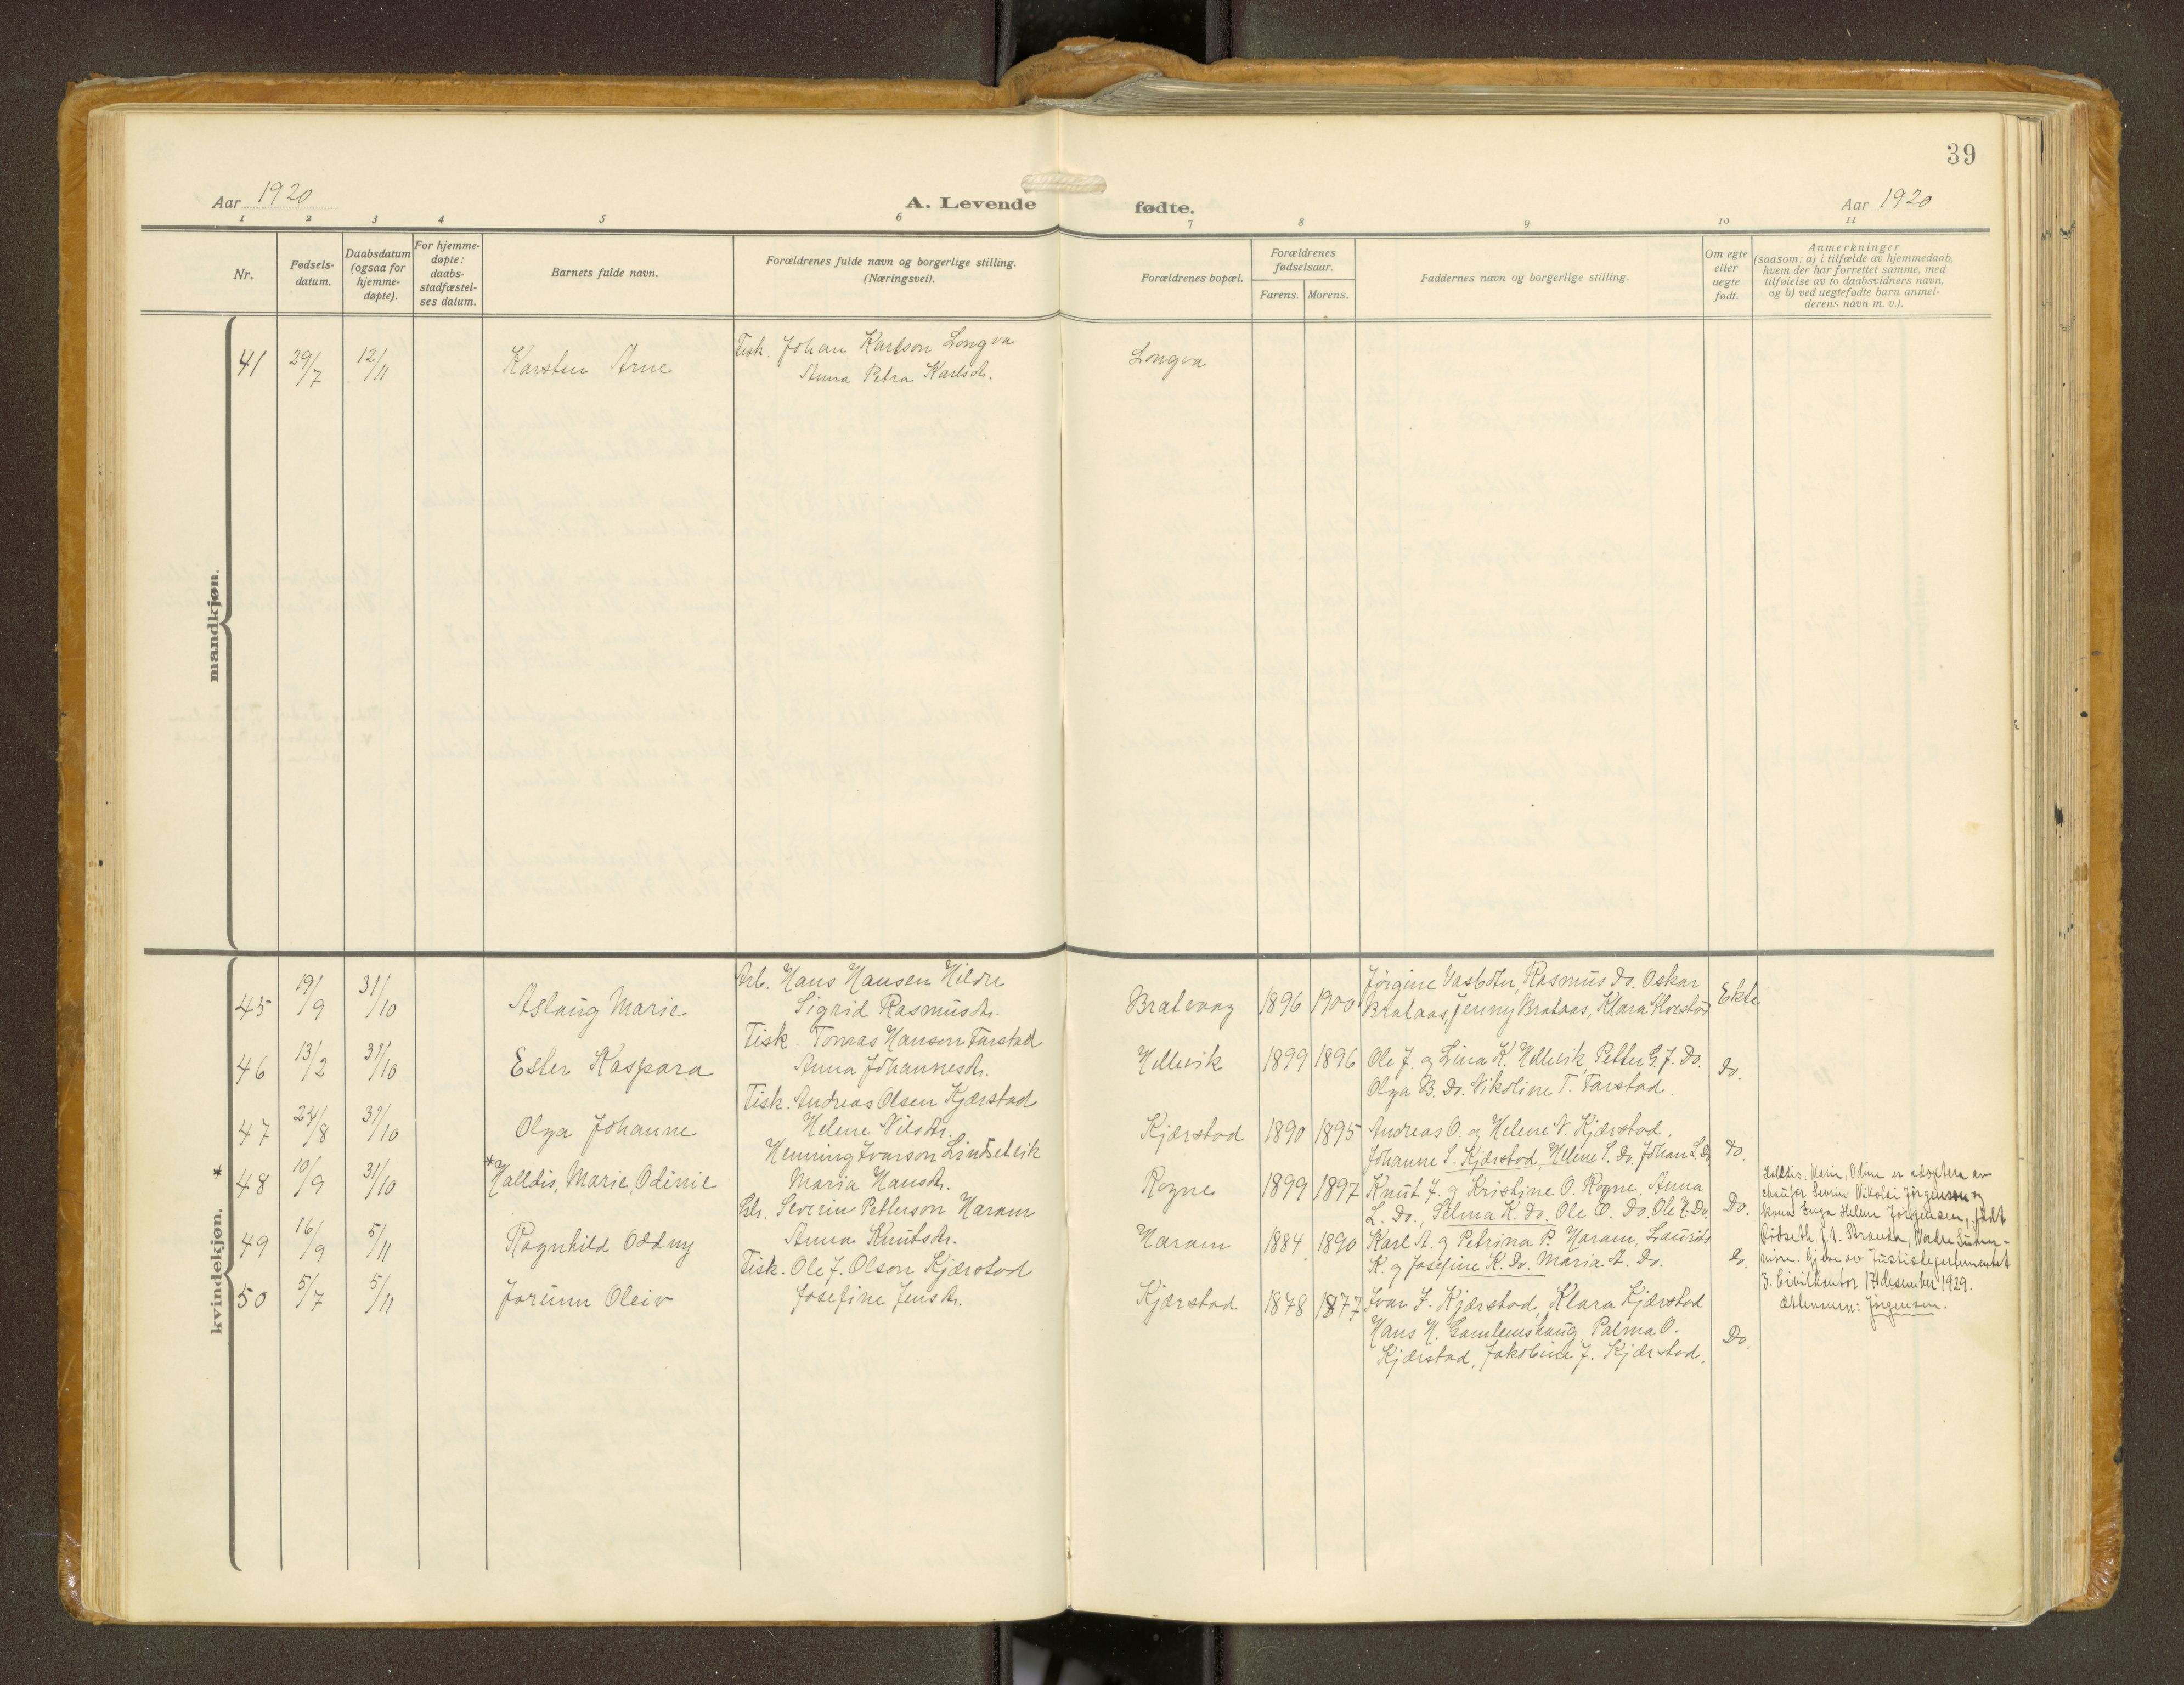 39
Aar 1920
A. Levende fødte.
Aar 1920
1 2 3 4 5 6 7 8 9 10 11
Nr.
Fødsels-
datum.
Daabsdatum
(ogsaa for
hjemme-
døpte).
For hjemme-
døpte:
daabs-
stadfæstel-
ses datum.
Barnets fulde navn.
Forældrenes fulde navn og borgerlige stilling.
(Næringsvei).
Forældrenes bopæl.
Forældrenes
fødselsaar.
Farens. Morens.
Faddernes navn og borgerlige stilling.
Om egte
eller
uegte
født.
Anmerkninger
(saasom: a) i tilfælde av hjemmedaab,
hvem der har forrettet samme, med
tilføielse av to daabsvidners navn,
og b) ved uegtefødte barn anmel-
derens navn m. v.).
mandkjøn.
41 29/7 12/11 Karsten Arne
Fisk. Johan Karlson Longva
Anna Petra Karlsdtr.
Longva
kvindekjøn. *
45 19/9 31/10 Aslaug Marie
Arb. Hans Hansen Hildre
Sigrid Rasmusdtr.
Bratvaag 1896 1900
Jørgine Rasmus Do. Oskar
Brataas, Jenny Brataas, Klara
Ekte
46 13/2 31/10 Ester Kaspara
Fisk. Tomas Hanson Farstad
Anna Johannesdtr.
Hellevik 1899 1896
Ole J. og Lina K. Hellevik, Petter G. J. Do.
Olga B. Do. Nikoline T. Farstad.
Do.
47 24/8 31/10 Olga Johanne
Fisk. Andreas Olsen Kjærstad
Helene Nilsdtr.
Kjærstad 1890 1895
Andreas O. og Helene N. Kjærstad.
Johanne S. Kjærstad, Heline S. Do. Johan L. Do.
Do.
48 10/9 31/10 *Halldis, Marie, Odinie
Henning Ivarson Lindsetvik
Maria Hansdtr.
Rogne 1899 1897
Knut J. og Kristine O. Rogne, Anna
L. Do., Selma K. Do. Ole O. Do. Ole K. Do.
Do.
Halldis, Marie, Odine er adoptera av
chaufør Severin Nikolai Jørgensen og
kona Inga Helene Jørgensen, født
Rødseth. p. t. Stranda, Nordre Sunn-
møre. Gjenn av Justisdepartementet
3. Civilkontor 17 desember 1929.
Ættenamn: Jørgensen.
49 16/9 5/11 Ragnhild Oddny
Gbr. Severin Petterson Haram
Anna Knutsdtr.
Haram 1884 1890
Karl A. og Petrina P. Haram, Laurits
K. og Josefine K. Do. Maria A. Do.
Do.
50 5/7 5/11 Jorunn Oleiv
Fisk. Ole J. Olson Kjærstad
Josefine Jensdtr.
Kjærstad 1878 1877
Ivar J. Kjærstad, Klara Kjærstad
Hans H. Gamlemshaug, Palma O.
Kjærstad, Jakobine J. Kjærstad.
Do.